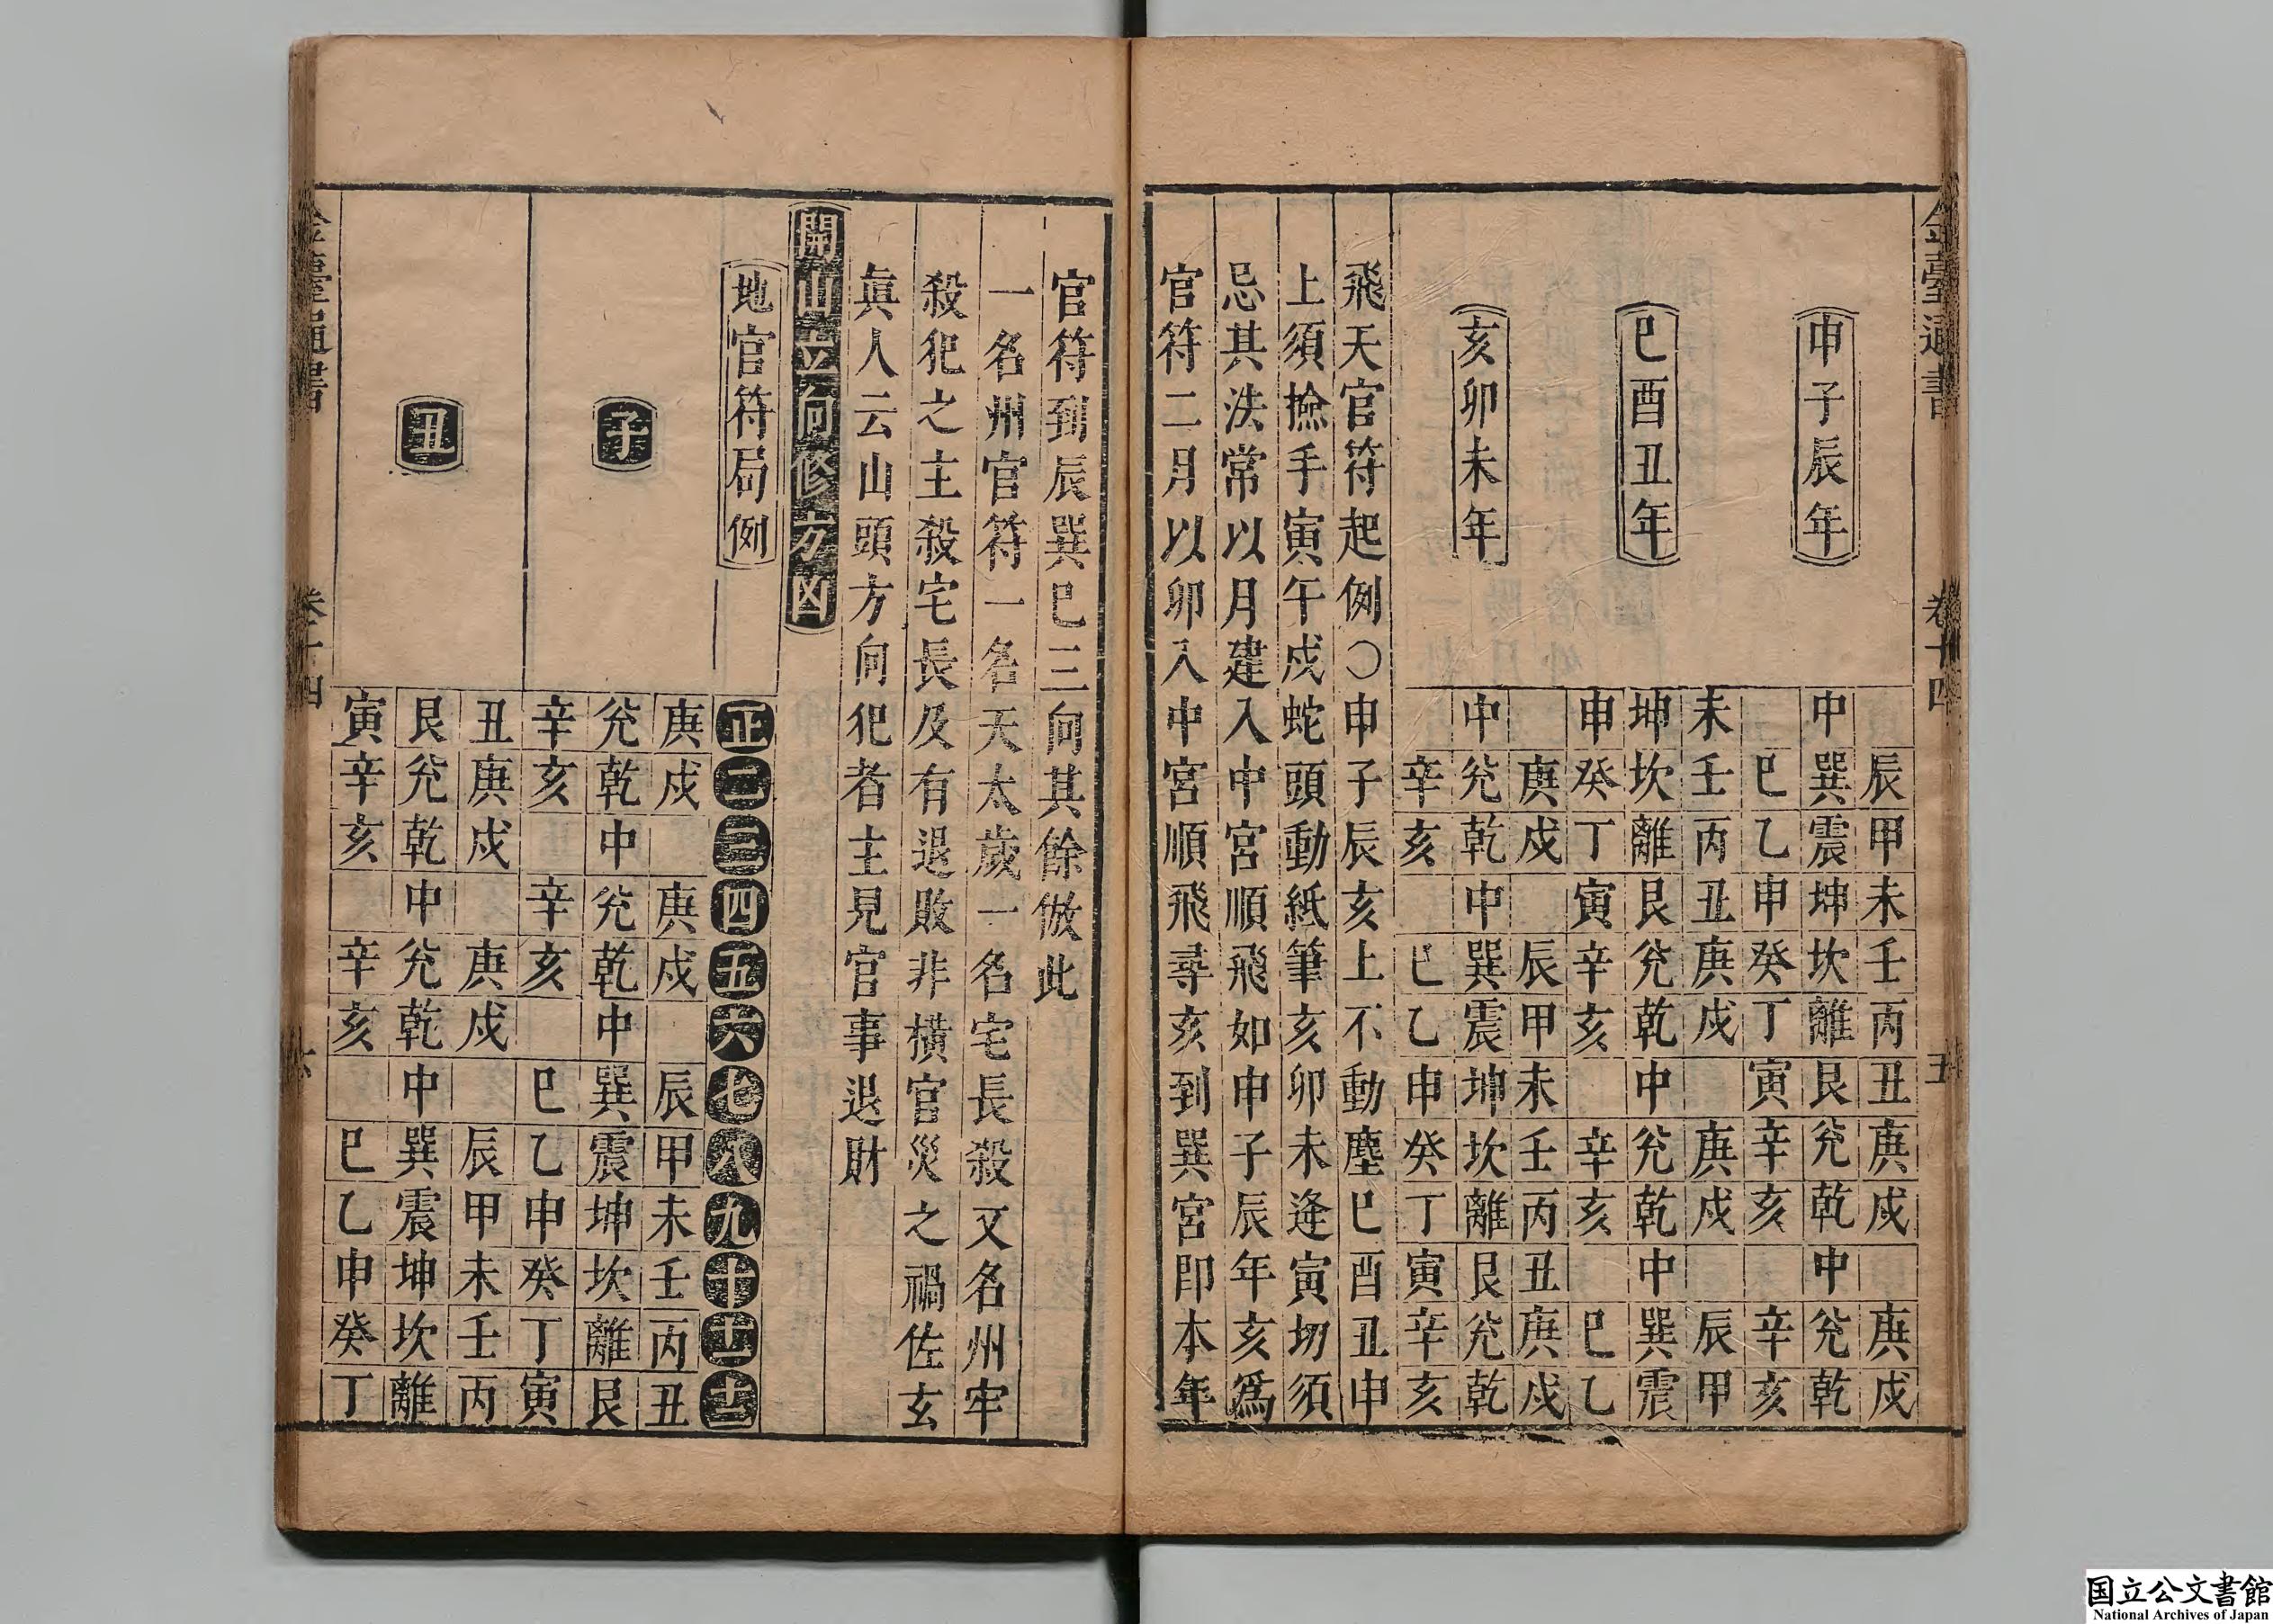 金臺通書 卷十四 五
辰甲未壬丙丑庚戌 庚戌
申子辰年 中巽震坤坎離艮兊乾中兊乾
巳乙申癸丁寅辛亥 辛亥
未壬丙丑庚戌 庚戌 辰甲
巳酉丑年 坤坎離艮兊乾中兊乾中巽震
申癸丁寅辛亥 辛亥 巳乙
庚戌 辰甲未壬丙丑庚戌
亥卯未年 中兊乾中巽震坤坎離艮兊乾
辛亥 巳乙申癸丁寅辛亥
飛天官符起例○申子辰亥上不動塵巳酉丑申
上須撿手寅午戌蛇頭動紙筆亥卯未逢寅切須
忌其法常以月建入中宮順飛如申子辰年亥爲
官符二月以卯入中宮順飛尋亥到巽宮即本年
官符到辰巽巳三向其餘倣此
一名州官符一名天太歲一名宅長殺又名州牢
殺犯之主殺宅長及有退敗非橫官災之禍佐玄
眞人云山頭方向犯者主見官事退財
開山立向修方凶
地官符局例 正二三四五六七八九十十一十二
庚戌 庚戌 辰甲未壬丙丑
子 兊乾中兊乾中巽震坤坎離艮
辛亥 辛亥 巳乙申癸丁寅
丑庚戌 庚戌 辰甲未壬丙
丑 艮兊乾中兊乾中巽震坤坎離
寅辛亥 辛亥 巳乙申癸丁
金臺通書 卷十四 六
国立公文書館
National Archives of Japan